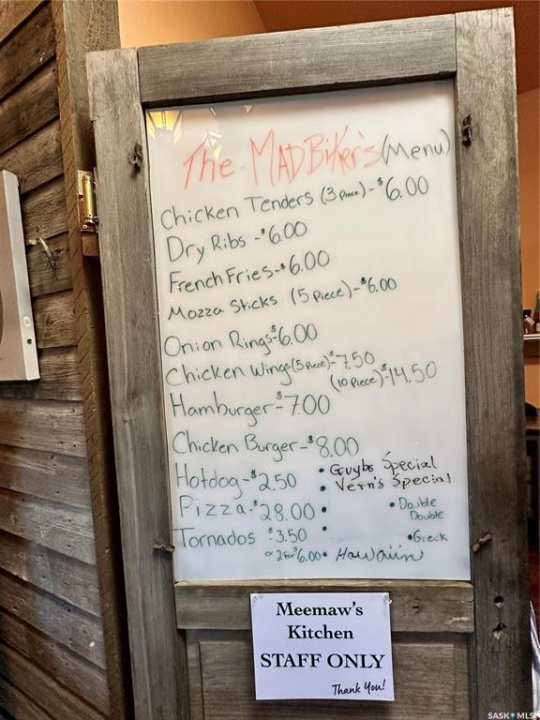 The MADBiker's (Menu)
Chicken Tenders (3 Piece) - $6.00
Dry Ribs - $6.00
French Fries - $6.00
Mozza Sticks (5 Piece) - $6.00
Onion Rings $6.00
Chicken Wings (5 Piece) - $7.50
(10 Piece) - $14.50
Hamburger - $7.00
Chicken Burger - $8.00
Hotdog - $2.50
• Special
• Vern's Special
Pizza - $28.00 •
• Double Double
Tornados $3.50
• Greek
or 2 for $6.00 • Hawaiin
Meemaw's
Kitchen
STAFF ONLY
Thank You!
SASK MLS